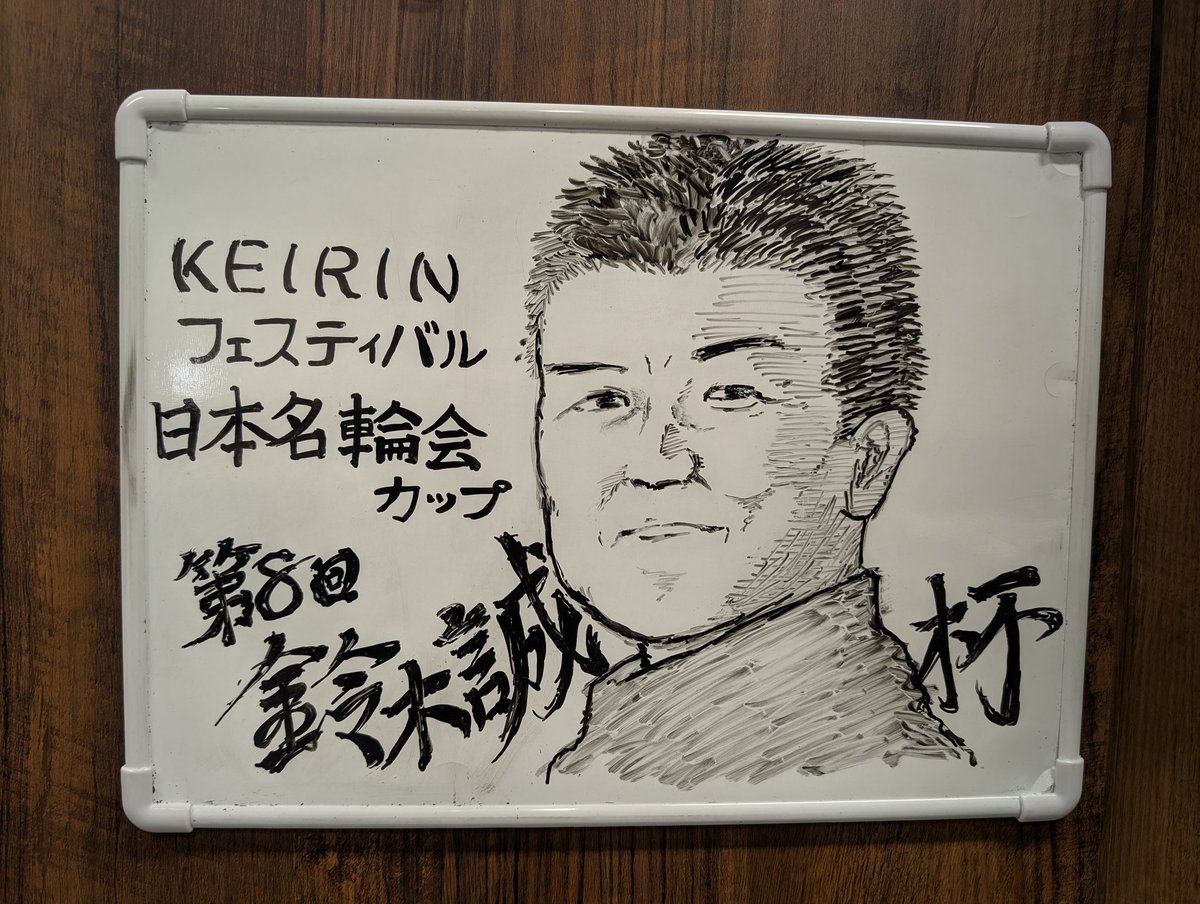 KEIRIN
フェスティバル
日本名輪会
カップ
第8回
鈴木誠杯